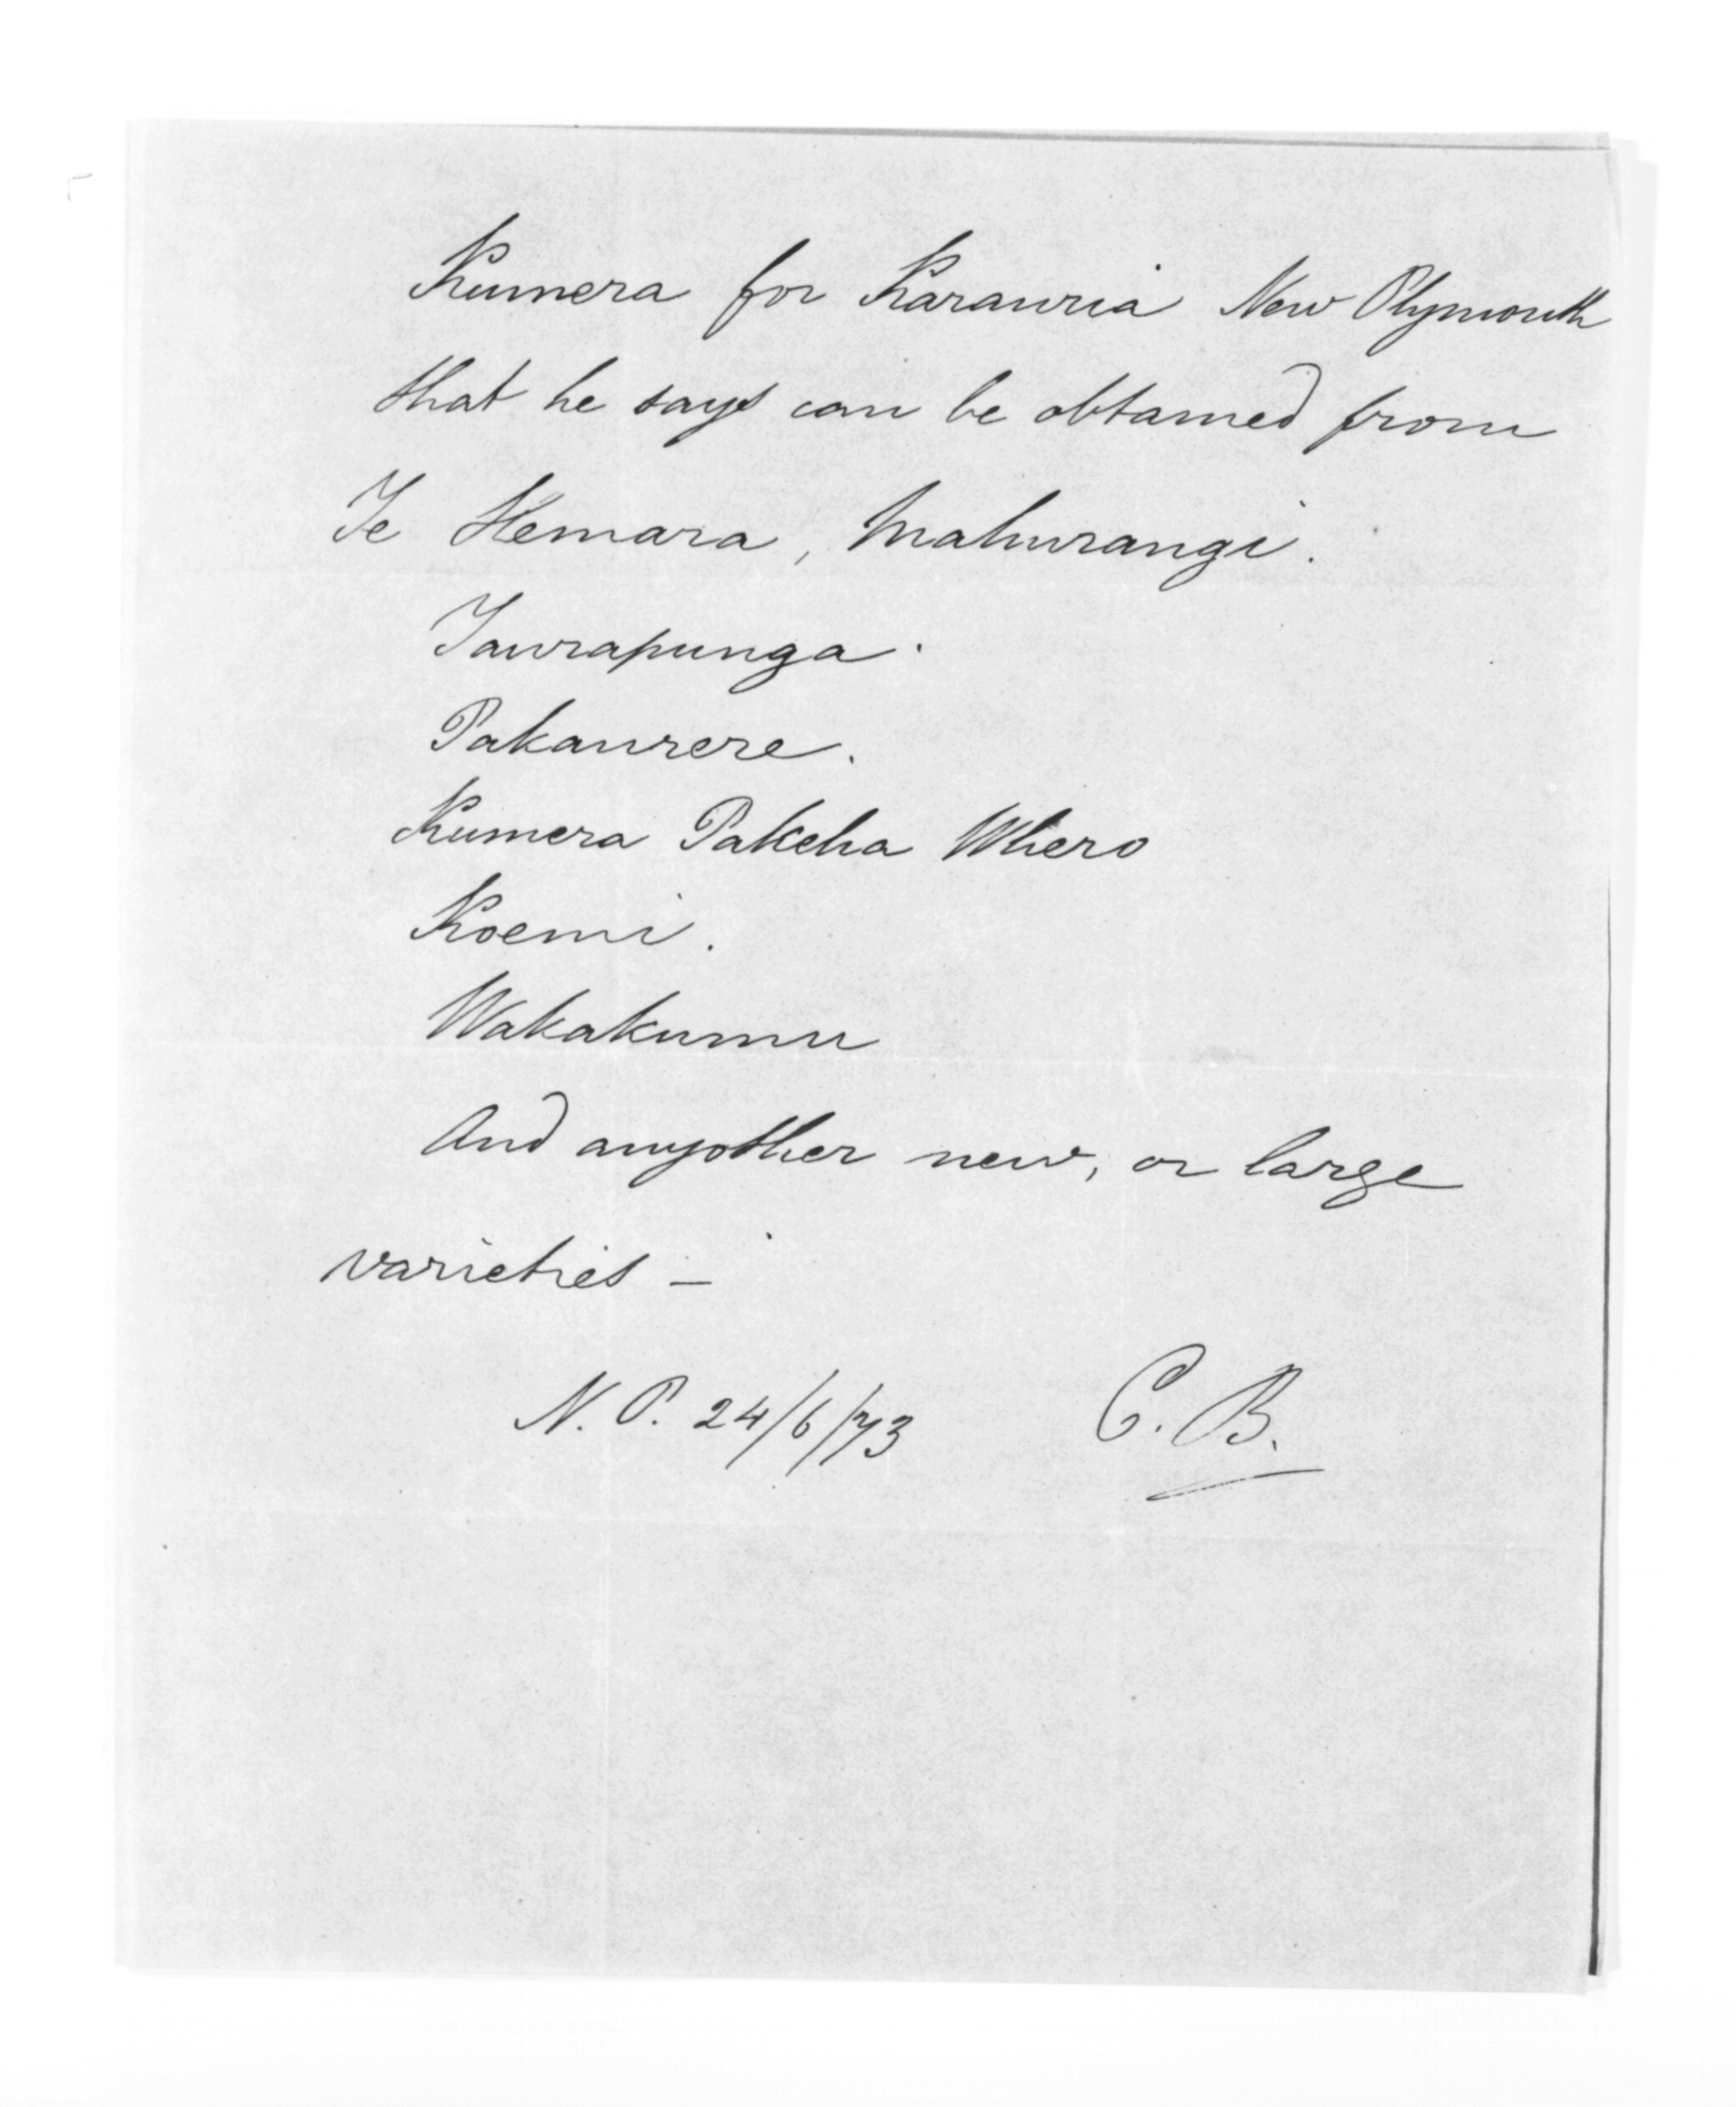 Kumera for Karauria New Plymouth
that he says can be obtained from
Te Hemara, Mahurangi.
Taurapunga.
Pakaurere.
Kumera Pakeha Whero
Koemi.
Wakakumu
And anyother new, or large
varieties –
N. P. 24/6/73 C. B.